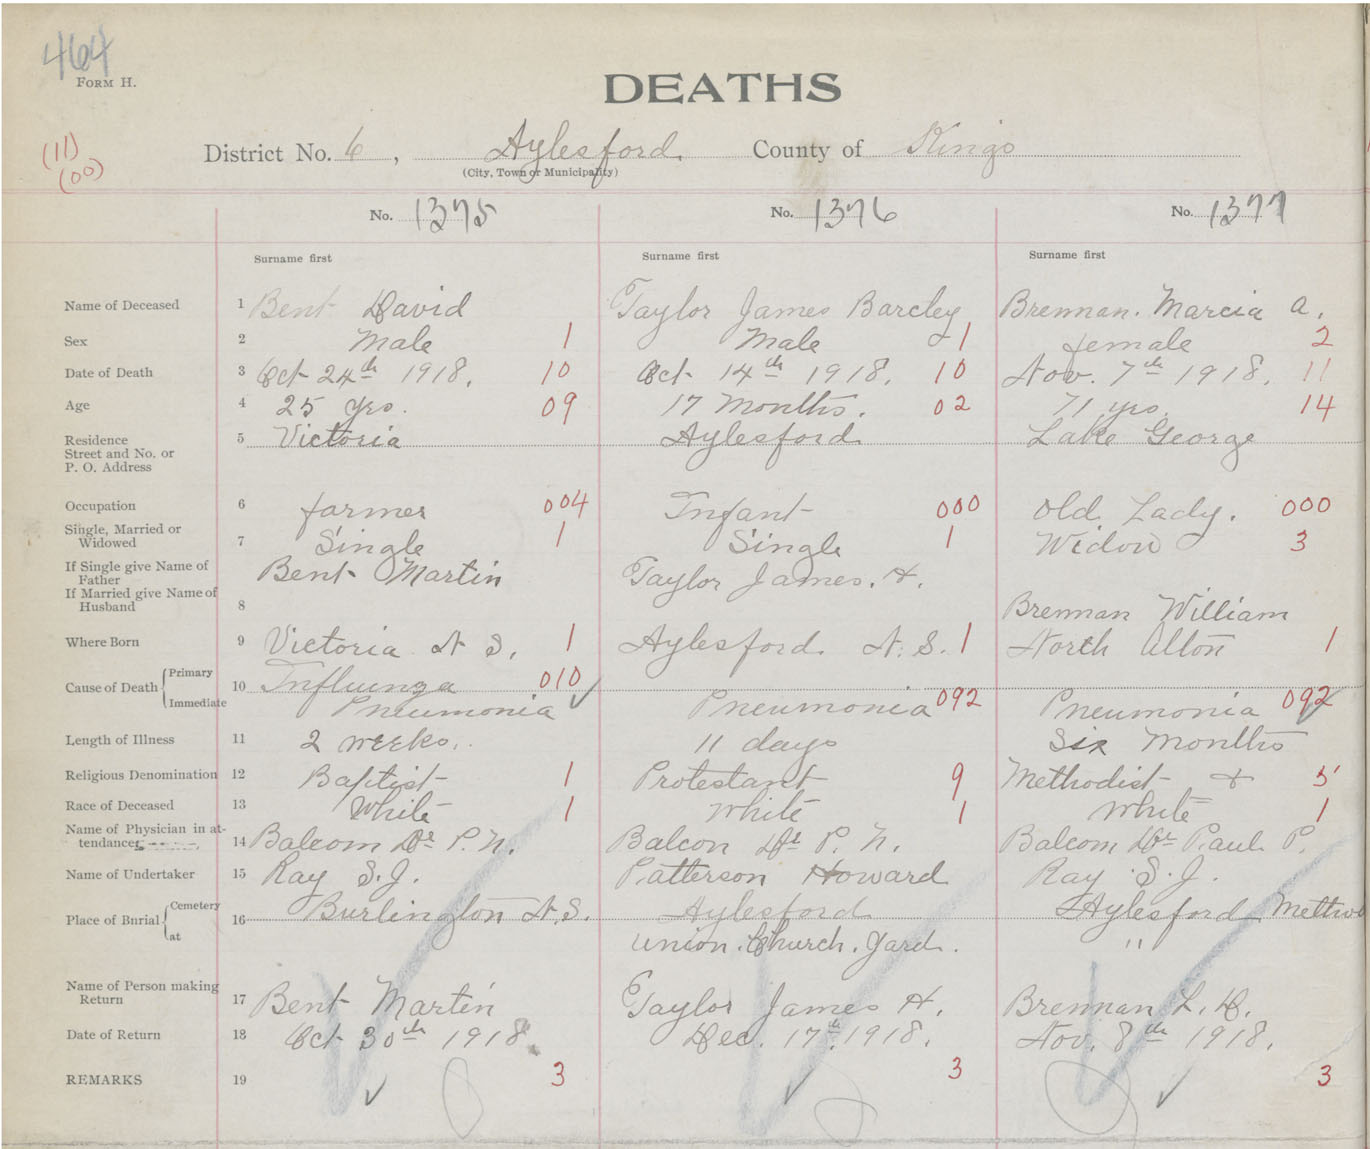 464
FORM H.
DEATHS
(11)
(00)
District No. 6, Aylesford. County of Kings
(City, Town or Municipality)
No. 1375 No. 1376 No. 1377
Surname first Surname first Surname first
Name of Deceased 1 Bent David Taylor James Barcley Brennan. Marcia A.
Sex 2 Male 1 Male 1 female 2
Date of Death 3 Oct 24th 1918. 10 Oct 14th 1918. 10 Nov. 7th 1918. 11
Age 4 25 yrs. 09 17 Months. 02 71 yrs. 14
Residence 5 Victoria Aylesford Lake George
Street and No. or
P. O. Address
Occupation 6 farmer 004 Infant 000 Old Lady. 000
Single, Married or
Widowed 7 Single 1 Single 1 Widow 3
If Single give Name of
Father Bent Martin Taylor James. H.
If Married give Name of
Husband 8 Brennan William
Where Born 9 Victoria N S. 1 Aylesford. N. S. 1 North Alton 1
Cause of Death { Primary 10 Influenza 010
Immediate Pneumonia Pneumonia 092 Pneumonia 092
Length of Illness 11 2 weeks. 11 days Six Months
Religious Denomination 12 Baptist 1 Protestant 9 Methodist 5
Race of Deceased 13 White 1 White 1 White 1
Name of Physician in at-
tendance 14 Balcom Dr P. N. Balcon Dr P. N. Balcom Dr Paul P.
Name of Undertaker 15 Ray S. J. Patterson Howard Ray S. J.
Place of Burial { Cemetery 16 Burlington N. S. Aylesford Aylesford Metho
at Union. Church. Yard. "
Name of Person making
Return 17 Bent Martin Taylor James H. Brennan L. D.
Date of Return 18 Oct 30th 1918 Dec. 17th 1918. Nov. 8th 1918.
REMARKS 19 3 3 3